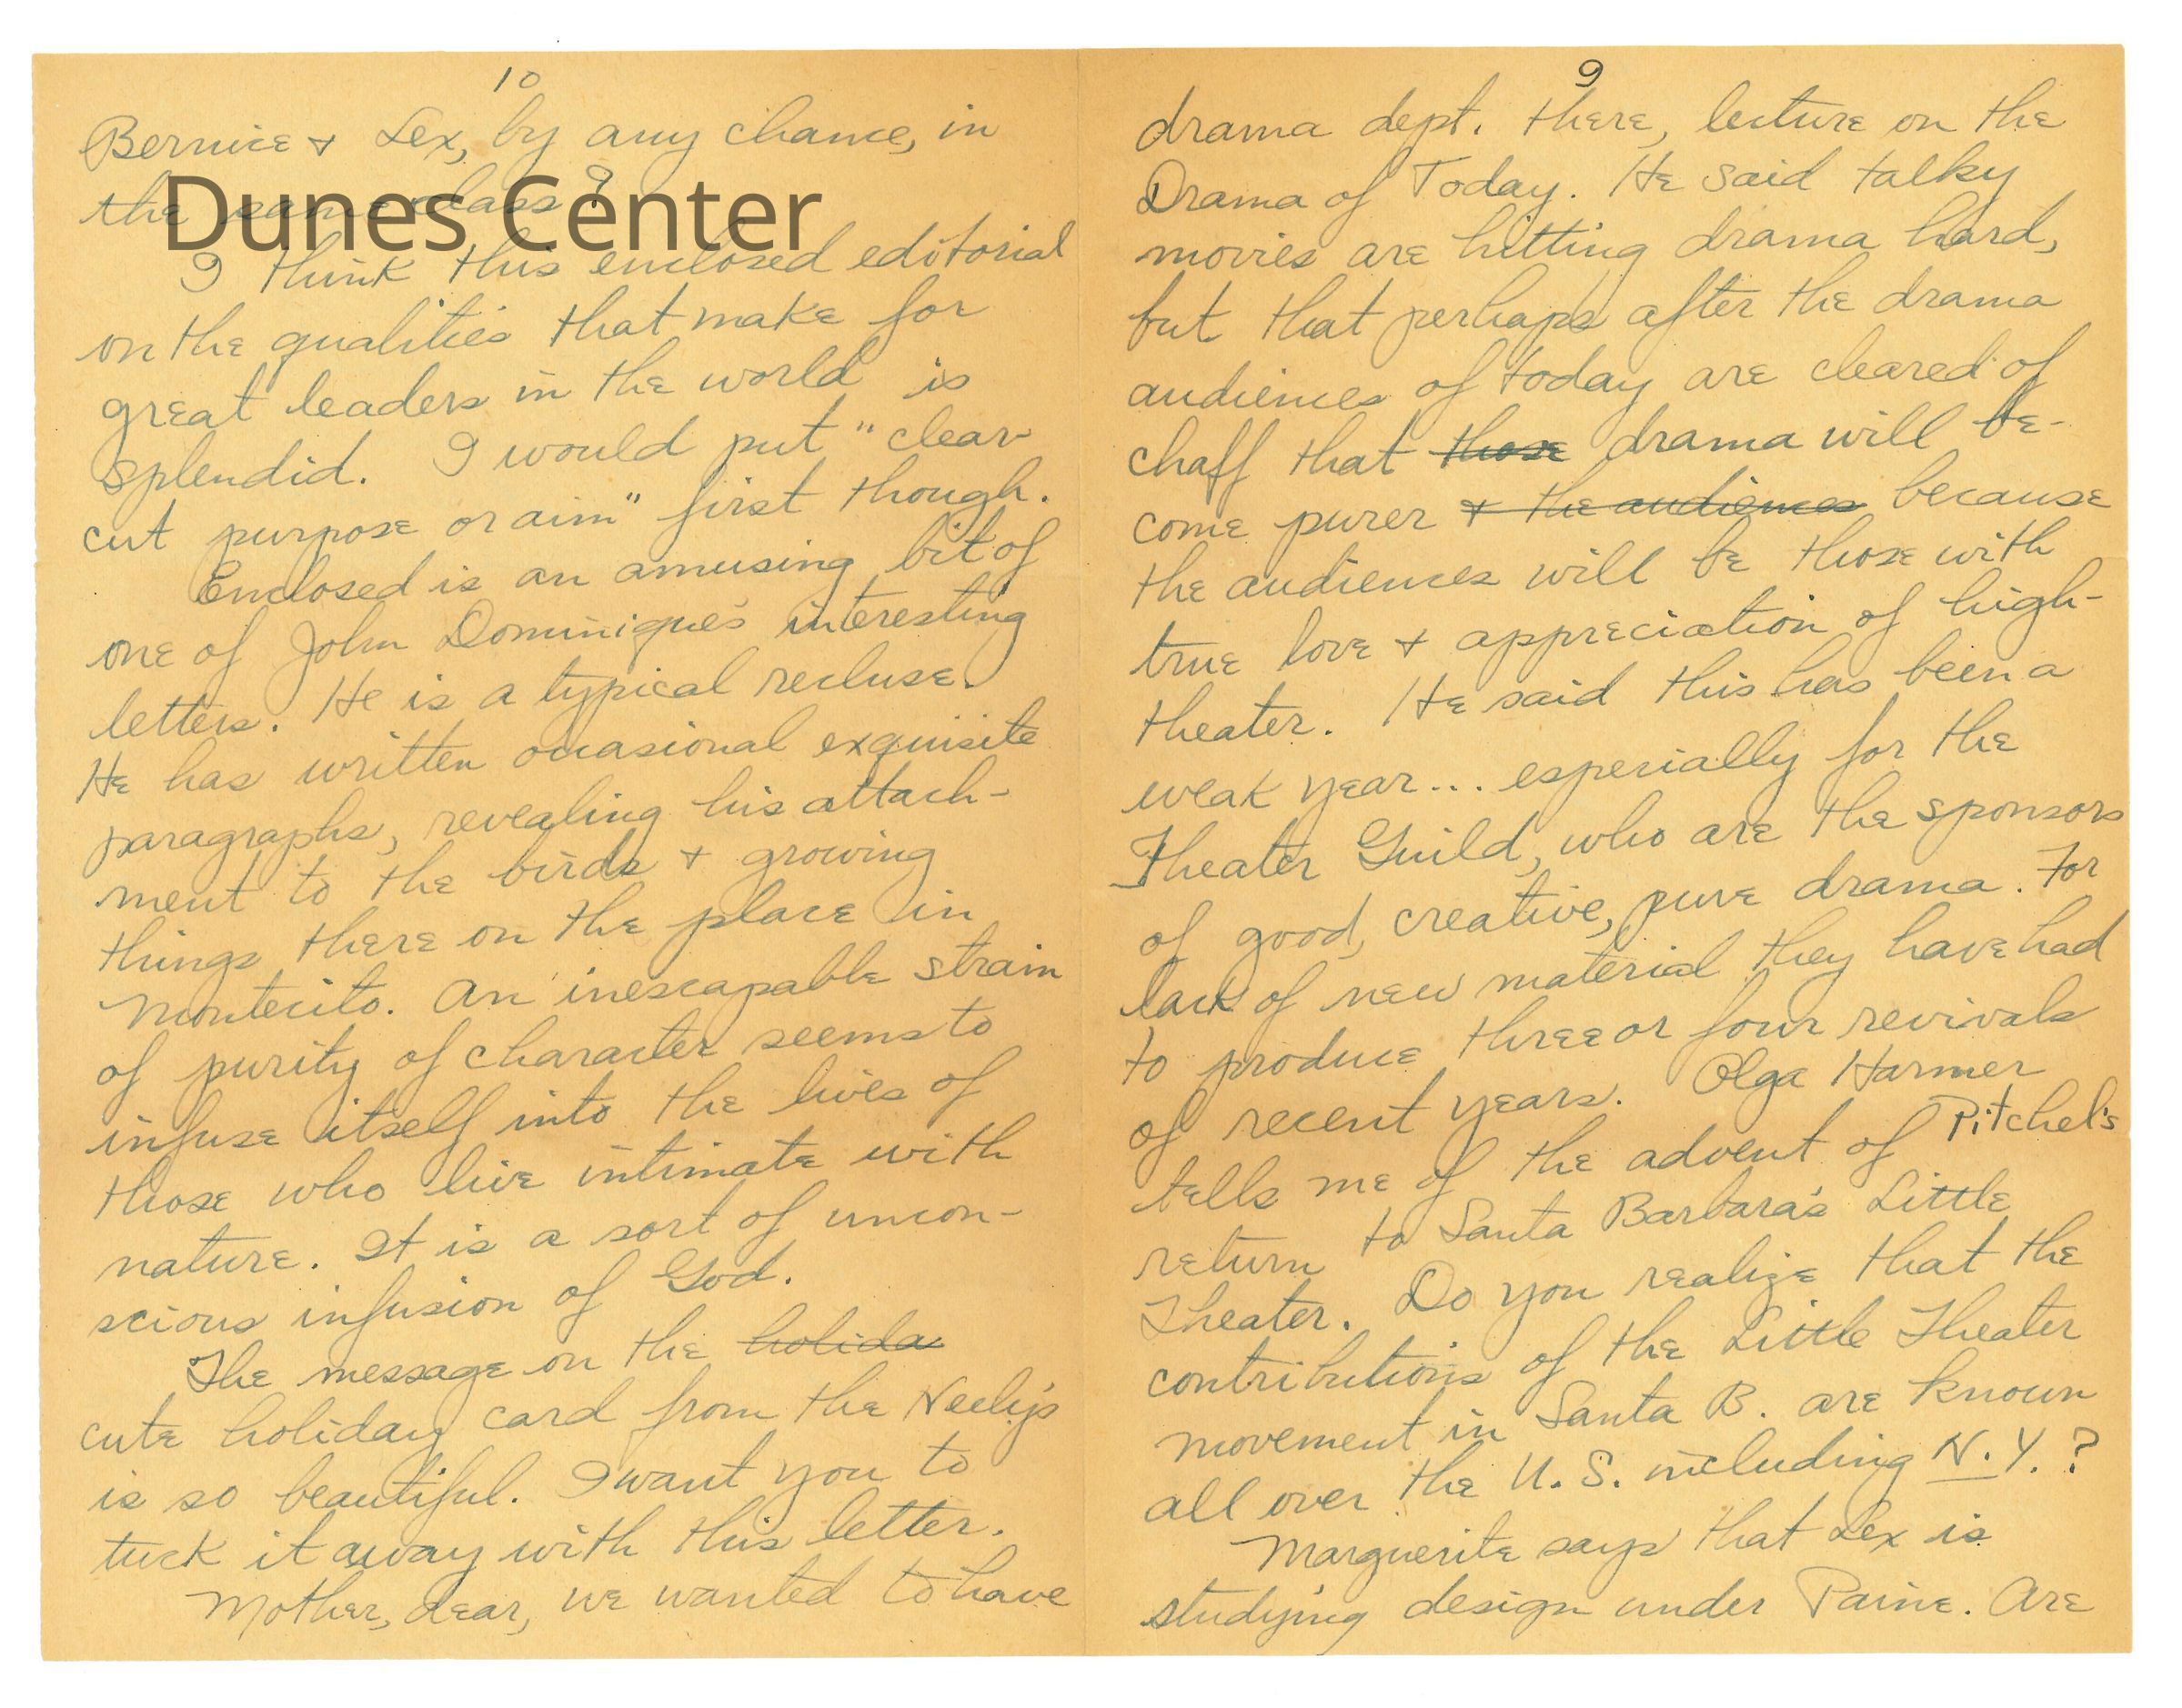 10
Bernice + Lex, by any chance, in
the same class?
Dunes Center
I think this enclosed editorial
on the qualities that make for
great leaders in the world is
splendid. I would put "clear-
cut purpose or aim" first though.
Enclosed is an amusing bit of
one of John Dominique's interesting
letters. He is a typical recluse.
He has written occasional exquisite
paragraphs, revealing his attach-
ment to the birds + growing
things there on the place in
Montecito. An inescapable strain
of purity of character seems to
infuse itself into the lives of
those who live intimate with
nature. It is a sort of uncon-
scious infusion of God.
The message on the holida
cute holiday card from the Neely's
is so beautiful. I want you to
tuck it away with this letter.
Mother, dear, we wanted to have
9
drama dept. there, lecture on the
Drama of Today. He said talky
movies are hitting drama hard,
but that perhaps after the drama
audiences of today are cleared of
chaff that those drama will be-
come purer + the audiences because
the audiences will be those with
true love + appreciation of high-
theater. He said this has been a
weak year... especially for the
Theater Guild, who are the sponsors
of good, creative, pure drama. For
lack of new material they have had
to produce three or four revivals
of recent years. Olga Harmer
tells me of the advent of Pitchel's
return to Santa Barbara's Little
Theater. Do you realize that the
contributions of the Little Theater
movement in Santa B. are known
all over the U.S. including N.Y.?
Marguerite says that Lex is
studying design under Paine. Are